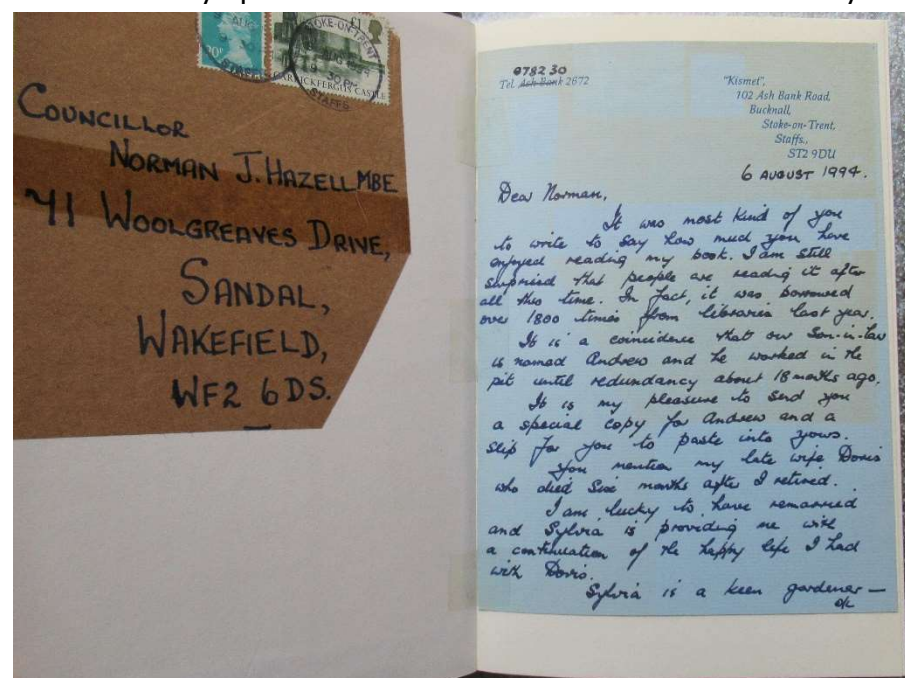 COUNCILLOR
NORMAN J. HAZELL MBE
41 WOOLGREAVES DRIVE,
SANDAL,
WAKEFIELD,
WF2 6DS.
20P
£1
STOKE-ON-TRENT
AUG
30 PM
STAFFS
CARRICKFERGUS CASTLE
0782 30
Tel. Ash Bank 2672
"Kismet",
102 Ash Bank Road,
Bucknall,
Stoke-on-Trent,
Staffs.,
ST2 9DU
6 AUGUST 1994.
Dear Norman,
It was most kind of you
to write to say how much you have
enjoyed reading my book. I am still
surprised that people are reading it after
all this time. In fact, it was borrowed
over 1800 times from libraries last year.
It is a coincidence that our Son-in-law
is named Andrew and he worked in the
pit until redundancy about 18 months ago.
It is my pleasure to send you
a special copy for Andrew and a
slip for you to paste into yours.
You mention my late wife Doris
who died six months after I retired.
I am lucky to have remarried
and Sylvia is providing me with
a continuation of the happy life I had
with Doris.
Sylvia is a keen gardener —